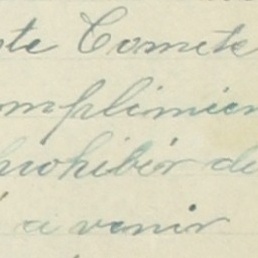 ste Comete
omplimien
prohibir de
á a venir